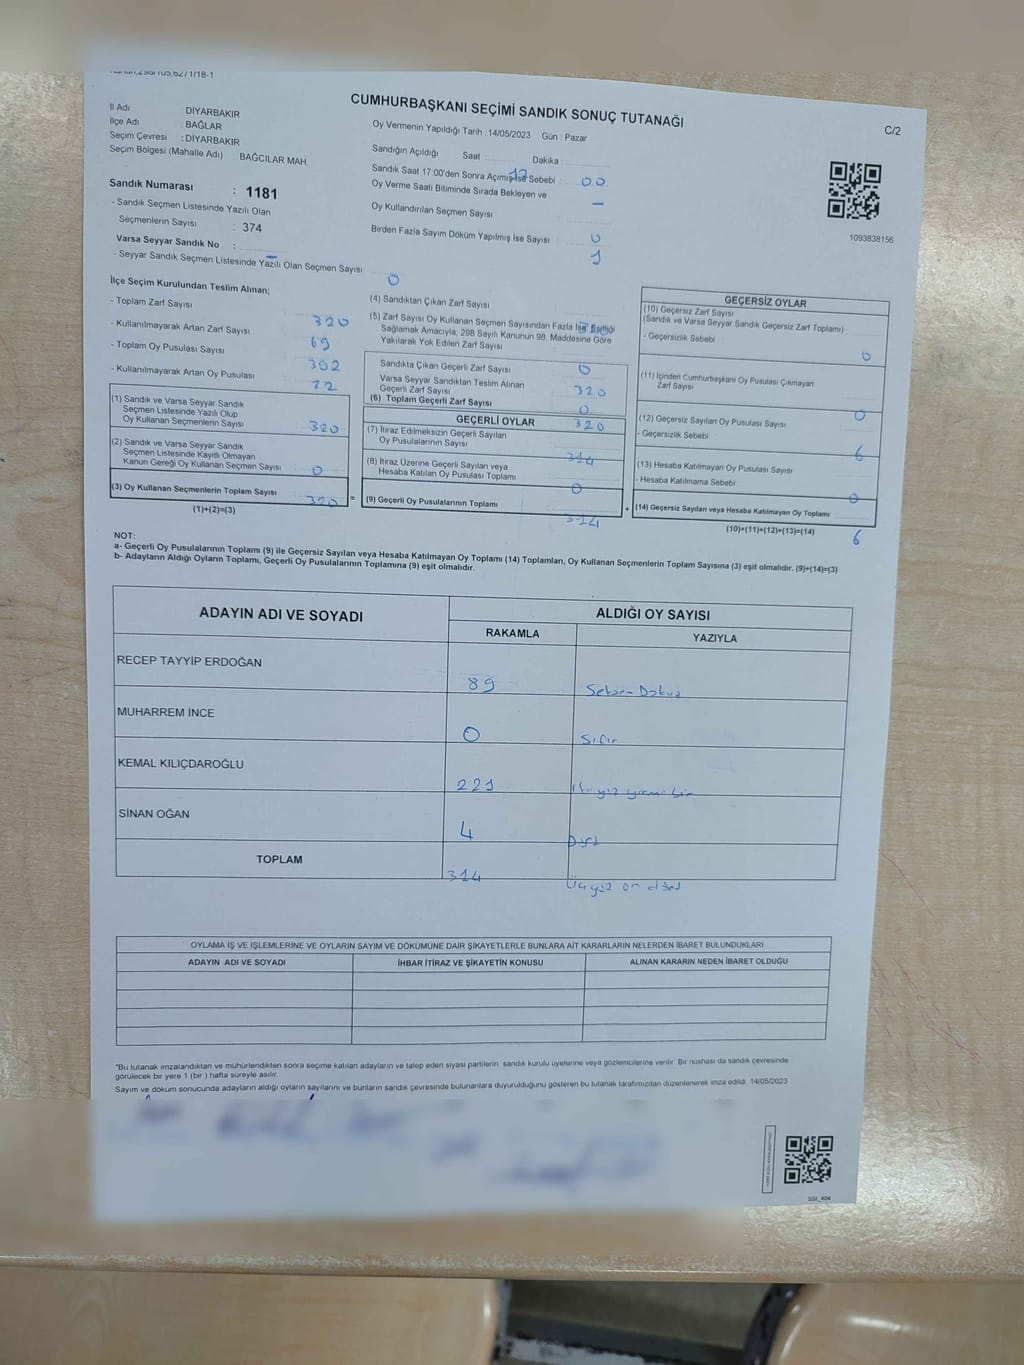 CUMHURBAŞKANI SEÇİMİ SANDIK SONUÇ TUTANAĞI
C/2
İl Adı DİYARBAKIR
İlçe Adı : BAĞLAR
Seçim Çevresi : DİYARBAKIR
Seçim Bölgesi (Mahalle Adı) : BAĞCILAR MAH.
Sandık Numarası : 1181
- Sandık Seçmen Listesinde Yazılı Olan
Seçmenlerin Sayısı : 374
Varsa Seyyar Sandık No : -
- Seyyar Sandık Seçmen Listesinde Yazılı Olan Seçmen Sayısı 0
Oy Vermenin Yapıldığı Tarih : 14/05/2023 Gün : Pazar
Sandığın Açıldığı Saat 17 Dakika 00
Sandık Saat 17:00'den Sonra Açımış İse Sebebi : -
Oy Verme Saati Bitiminde Sırada Bekleyen ve
Oy Kullandırılan Seçmen Sayısı 0
Birden Fazla Sayım Döküm Yapılmış İse Sayısı 1
1093838156
İlçe Seçim Kurulundan Teslim Alınan;
- Toplam Zarf Sayısı 320
- Kullanılmayarak Artan Zarf Sayısı 69
- Toplam Oy Pusulası Sayısı 392
- Kullanılmayarak Artan Oy Pusulası 72
(1) Sandık ve Varsa Seyyar Sandık
Seçmen Listesinde Yazılı Olup
Oy Kullanan Seçmenlerin Sayısı 320
(2) Sandık ve Varsa Seyyar Sandık
Seçmen Listesinde Kayıtlı Olmayan
Kanun Gereği Oy Kullanan Seçmen Sayısı 0
(3) Oy Kullanan Seçmenlerin Toplam Sayısı 320 =
(1)+(2)=(3)
(4) Sandıktan Çıkan Zarf Sayısı
(5) Zarf Sayısı Oy Kullanan Seçmen Sayısından Fazla İse Eşitliği
Sağlamak Amacıyla, 298 Sayılı Kanunun 98. Maddesine Göre
Yakılarak Yok Edilen Zarf Sayısı 0
Sandıkta Çıkan Geçerli Zarf Sayısı 320
Varsa Seyyar Sandıktan Teslim Alınan
Geçerli Zarf Sayısı 0
(6) Toplam Geçerli Zarf Sayısı 320
GEÇERLİ OYLAR
(7) İtiraz Edilmeksizin Geçerli Sayılan
Oy Pusulalarının Sayısı 314
(8) İtiraz Üzerine Geçerli Sayılan veya
Hesaba Katılan Oy Pusulası Toplamı 0
(9) Geçerli Oy Pusulalarının Toplamı 314 +
GEÇERSİZ OYLAR
(10) Geçersiz Zarf Sayısı
(Sandık ve Varsa Seyyar Sandık Geçersiz Zarf Toplamı)
- Geçersizlik Sebebi : 0
(11) İçinden Cumhurbaşkanı Oy Pusulası Çıkmayan
Zarf Sayısı 0
(12) Geçersiz Sayılan Oy Pusulası Sayısı
- Geçersizlik Sebebi : 6
(13) Hesaba Katılmayan Oy Pusulası Sayısı
- Hesaba Katılmama Sebebi : 0
(14) Geçersiz Sayılan veya Hesaba Katılmayan Oy Toplamı 6
(10)+(11)+(12)+(13)=(14)
NOT:
a- Geçerli Oy Pusulalarının Toplamı (9) ile Geçersiz Sayılan veya Hesaba Katılmayan Oy Toplamı (14) Toplamları, Oy Kullanan Seçmenlerin Toplam Sayısına (3) eşit olmalıdır. (9)+(14)=(3)
b- Adayların Aldığı Oyların Toplamı, Geçerli Oy Pusulalarının Toplamına (9) eşit olmalıdır.
ADAYIN ADI VE SOYADI ALDIĞI OY SAYISI
RAKAMLA YAZIYLA
RECEP TAYYİP ERDOĞAN 89 Seksen Dokuz
MUHARREM İNCE 0 Sıfır
KEMAL KILIÇDAROĞLU 221 iki yüz yirmi bir
SİNAN OĞAN 4 Dört
TOPLAM 314 Üçyüz on dört
OYLAMA İŞ VE İŞLEMLERİNE VE OYLARIN SAYIM VE DÖKÜMÜNE DAİR ŞİKAYETLERLE BUNLARA AİT KARARLARIN NELERDEN İBARET BULUNDUKLARI
ADAYIN ADI VE SOYADI İHBAR İTİRAZ VE ŞİKAYETİN KONUSU ALINAN KARARIN NEDEN İBARET OLDUĞU
*Bu tutanak imzalandıktan ve mühürlendikten sonra seçime katılan adayların ve talep eden siyasi partilerin sandık kurulu üyelerine veya gözlemcilerine verilir. Bir nüshası da sandık çevresinde
görülecek bir yere 1 (bir) hafta süreyle asılır.
Sayım ve döküm sonucunda adayların aldığı oyların sayılarını ve bunların sandık çevresinde bulunanlara duyurulduğunu gösteren bu tutanak tarafımızdan düzenlenerek imza edildi. 14/05/2023
SSI_404